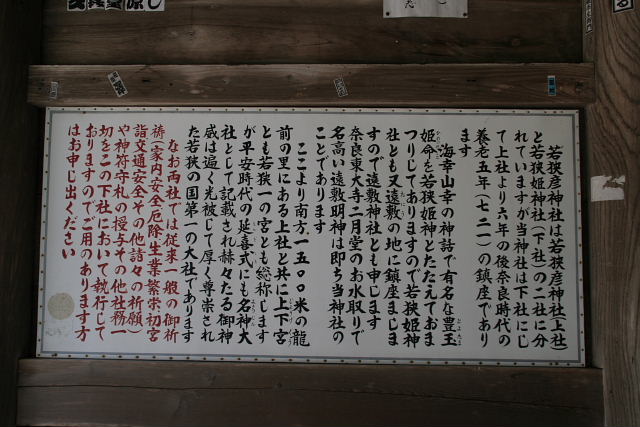 若狭彦神社は若狭彦神社(上社)
と若狭姫神社(下社)の二社に分
れていますが当神社は下社にし
て上社より六年の後奈良時代の
養老五年(七二一)の鎮座であり
ます
海幸山幸の神話で有名な豊玉
姫命を若狭姫神とたたえておま
つりしてありますので若狭姫神
社とも又遠敷の地に鎮座しま
すので遠敷神社とも申します
奈良東大寺二月堂のお水取りで
名高い遠敷明神は即ち当神社の
ことであります
ここより南方一五〇〇米の龍
前の里にある上社と共に上下宮
とも若狭一の宮とも総称します
が平安時代の延喜式にも名神大
社として記載され赫々たる御神
威は遍く光被して厚く尊崇され
た若狭の国第一の大社であります
なお両社では従来一般の御祈
祷(家内安全厄除生業繁栄初宮
詣交通安全その他諸々の祈願)
や神符守札の授与その他社務一
切をこの下社において執行して
おりますのでご用のあります方
はお申し出ください